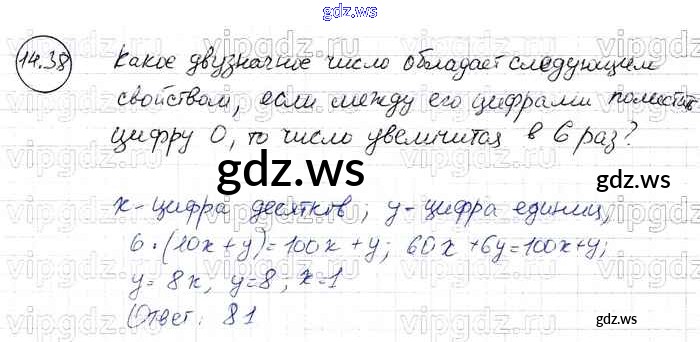 gdz.ws
14.38 Какое двузначное число обладает следующим
свойством, если между его цифрами поместить
цифру 0, то число увеличится в 6 раз?
gdz.ws
gdz.ws
x - цифра десятков; y - цифра единиц,
6·(10x+y)=100x+y; 60x+6y=100x+y;
y=8x, y=8; x=1
Ответ: 81
gdz.ws